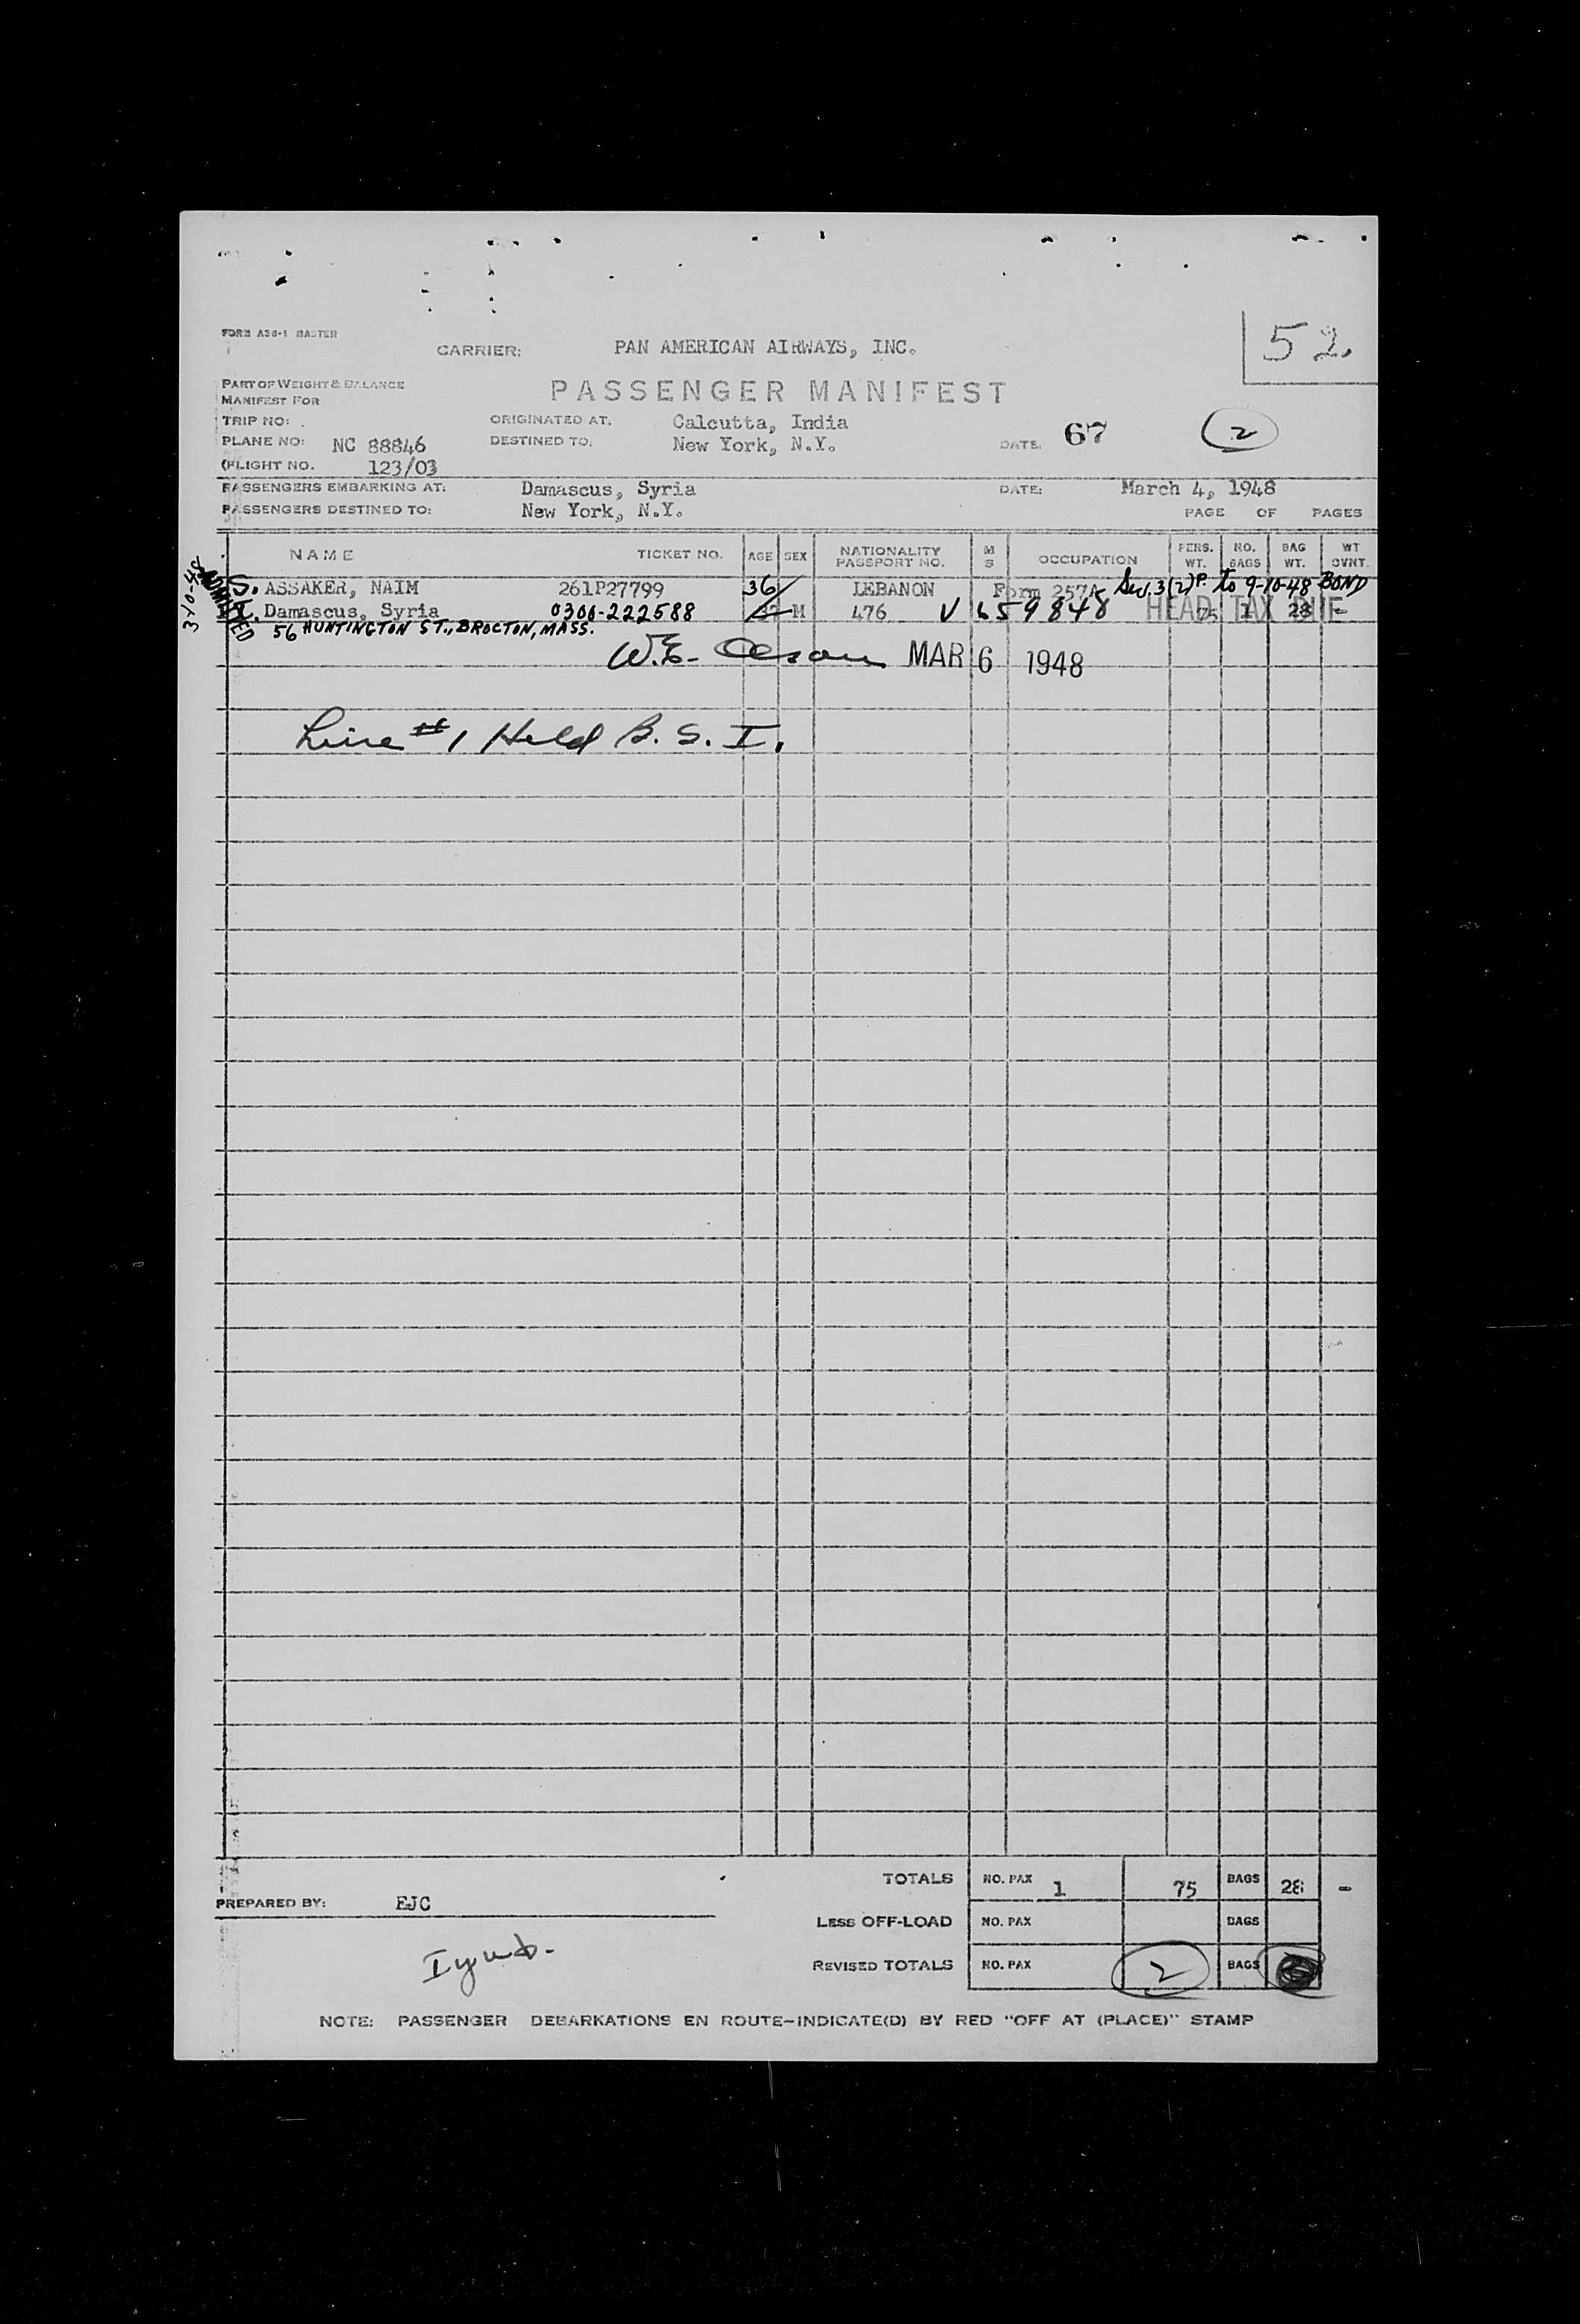 FORM A36-1 MASTER
52.
CARRIER: PAN AMERICAN AIRWAYS, INC.
PART OF WEIGHT & BALANCE
MANIFEST FOR
PASSENGER MANIFEST
TRIP NO: ORIGINATED AT. Calcutta, India
PLANE NO: NC 88846 DESTINED TO. New York, N.Y. DATE. 67 2
FLIGHT NO. 123/03
PASSENGERS EMBARKING AT: Damascus, Syria DATE: March 4, 1948
PASSENGERS DESTINED TO: New York, N.Y. PAGE OF PAGES
NAME TICKET NO. AGE SEX NATIONALITY PASSPORT NO. M S OCCUPATION PERS. WT. NO. BAGS BAG WT. WT OVNT.
3-10-48 ADMITTED
S. ASSAKER, NAIM 261P27799 36 LEBANON Form 257A Sec. 3(2)P. To 9-10-48 BOND
I. Damascus, Syria 0300-222588 M 476 V 659848 HEAD TAX DUE 75 1 28 -
56 HUNTINGTON ST., BROCTON, MASS.
W.E. MAR 6 1948
Line #1 Held B. S. I.
TOTALS NO. PAX 1 75 BAGS 28 -
PREPARED BY: EJC
LESS OFF-LOAD NO. PAX BAGS
REVISED TOTALS NO. PAX 2 BAGS
NOTE: PASSENGER DEBARKATIONS EN ROUTE-INDICATE(D) BY RED "OFF AT (PLACE)" STAMP